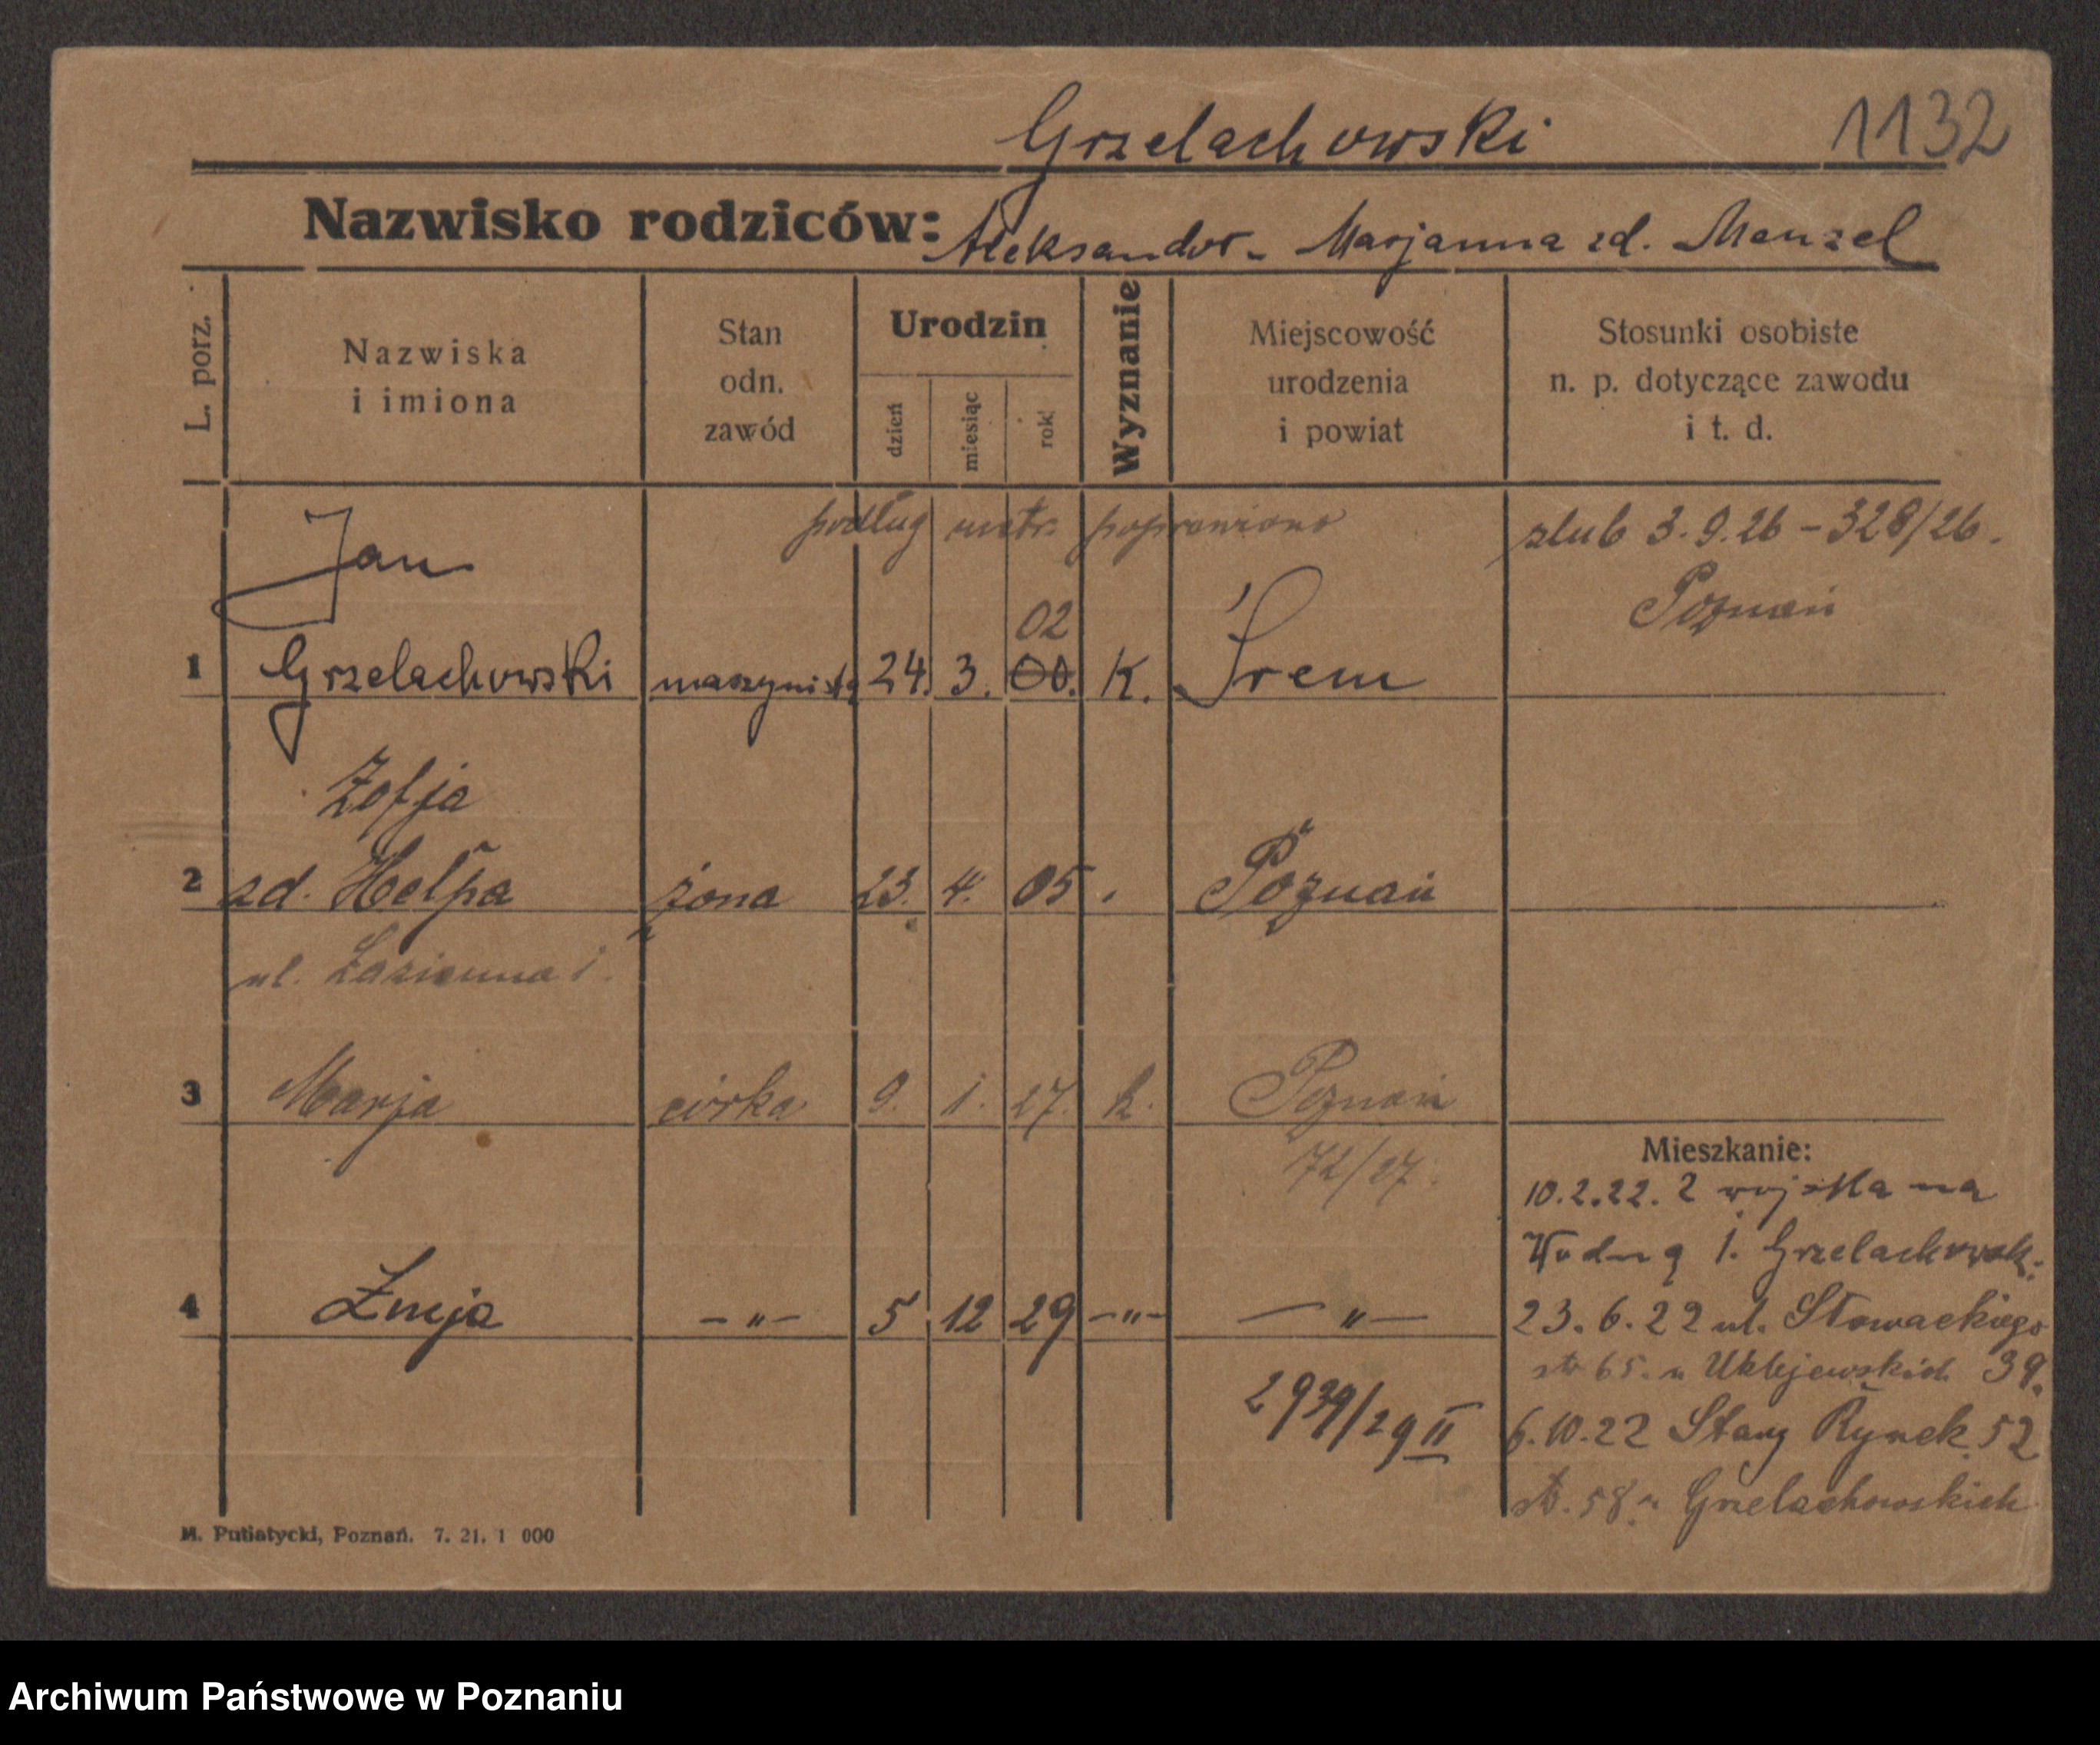 Grzelachowski 1132
Nazwisko rodziców: Aleksander - Marjanna zd. Menzel
L. porz.
Nazwiska
i imiona
Stan
odn.
zawód
Urodzin
dzień
miesiąc
rok
Wyznanie
Miejscowość
urodzenia
i powiat
Stosunki osobiste
n. p. dotyczące zawodu
i t. d.
podług metr. poprawiono
ślub 3.9.26 - 328/26.
Poznań
Jan
02
1 Grzelachowski maszynista 24. 3. 00. K. Śrem
Zofja
2 zd. Hełpa żona 23. 4. 05 Poznań
ul. Łazienna 1.
3 Marja córka 9. 1. 27. k. Poznań
72/27.
4 Łucja -"- 5 12 29 -"- -"-
2939/29 II
Mieszkanie:
10.2.22. z wojska na
Wodną 1. Grzelachowsk.
23.6.22 ul. Słowackiego
str 65. u Uklejewskich 39.
6.10.22 Stary Rynek 52
str. 58. u Grzelachowskich
M. Putiatycki, Poznań. 7. 21. 1 000
Archiwum Państwowe w Poznaniu